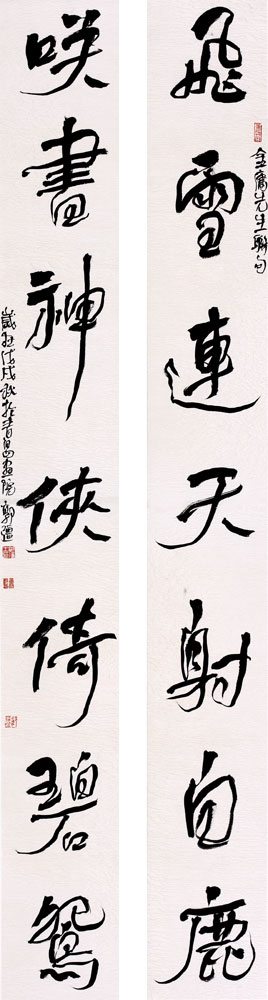 飛雪連天射白鹿
金庸先生聯句
咲書神俠倚碧鴛
歲在戊戌秋於青島畫院